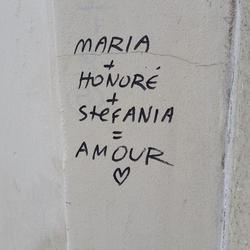 MARIA
+
HONORÉ
+
StéFANIA
=
AMOUR
♡